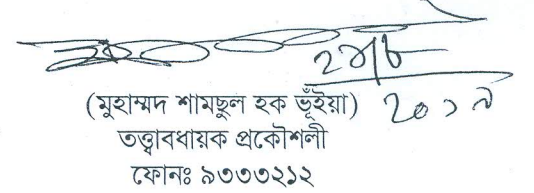 (মুহাম্মদ শামছুল হক ভূঁইয়া)
তত্ত্বাবধায়ক প্রকৌশলী
ফোনঃ ৯৩৩৩২১২